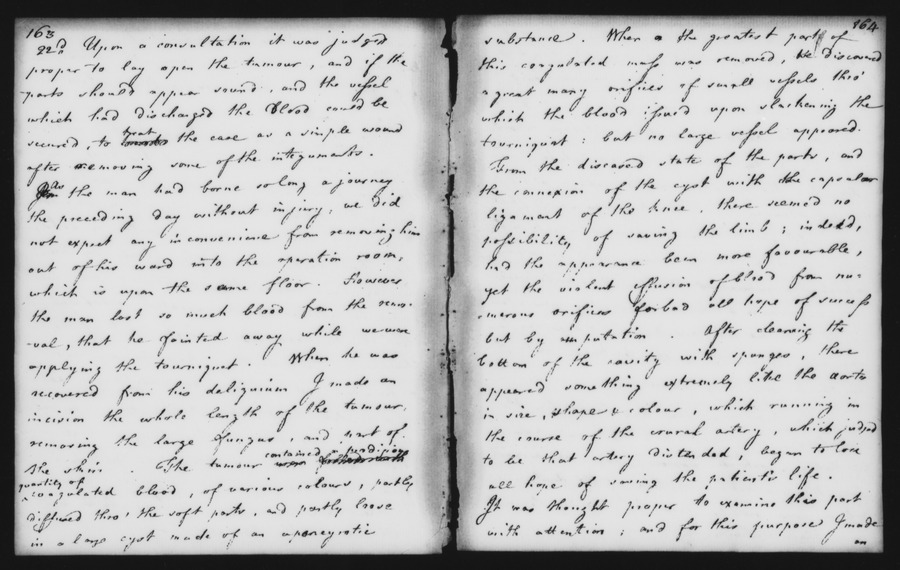 163
22d Upon a consultation it was judged
proper to lay open the tumour, and if the
parts should appear sound, and the vessel
which had discharged the blood could be
secured, to treat the case as a simple wound
after removing some of the integuments.
As the man had borne so long a journey
the preceding day without injury, we did
not expect any inconvenience from removing him
out of his ward into the operation room,
which is upon the same floor. However
the man lost so much blood from the remo-
-val, that he fainted away while we were
applying the tourniquet. When he was
recovered from his deliquium I made an
incision the whole length of the tumour,
removing the large fungus, and part of
the skin. The tumour contained a prodigious
quantity of coagulated blood, of various colours, partly
diffused thro' the soft parts, and partly loose
in a large cyst made of an aponeurotic
164
substance. When the greatest part of
this coagulated mass was removed, we discovered
a great many orifices of small vessels thro'
which the blood issued upon slackening the
tourniquet: but no large vessel appeared.
From the diseased state of the parts, and
the connexion of the cyst with the capsular
ligament of the knee, there seemed no
possibility of saving the limb; indeed,
had the appearance been more favourable,
yet the violent effusion of blood from nu-
-merous orifices forbad all hope of success
but by amputation. After cleansing the
bottom of the cavity with sponges, there
appeared something extremely like the aorta
in size, shape & colour, which running in
the course of the crural artery, which judged
to be that artery distended, began to lose
all hope of saving the patient's life.
It was thought proper to examine this part
with attention; and for this purpose I made
an